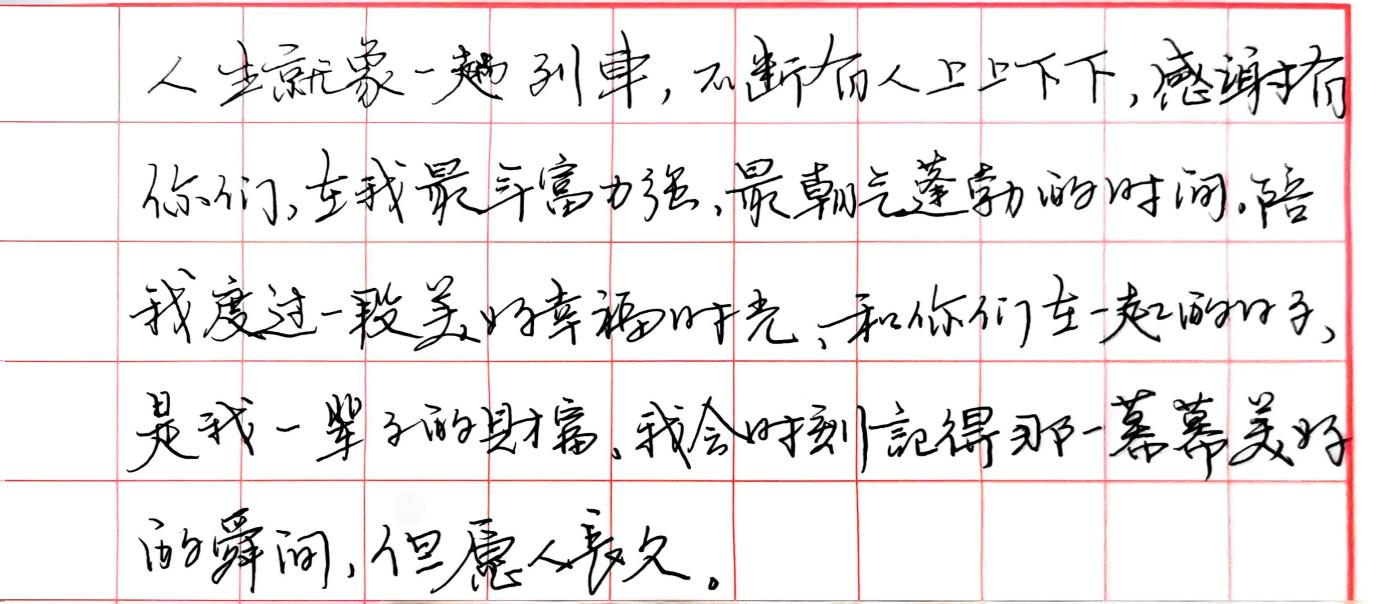 人生就象一趟列車,不断有人上上下下,感謝有
你们,在我最年富力强、最朝气蓬勃的时间.陪
我度过一段美好幸福时光、和你们在一起的日子,
是我一辈子的財富、我会时刻記得那一幕幕美好
的舜间,但愿人長久。